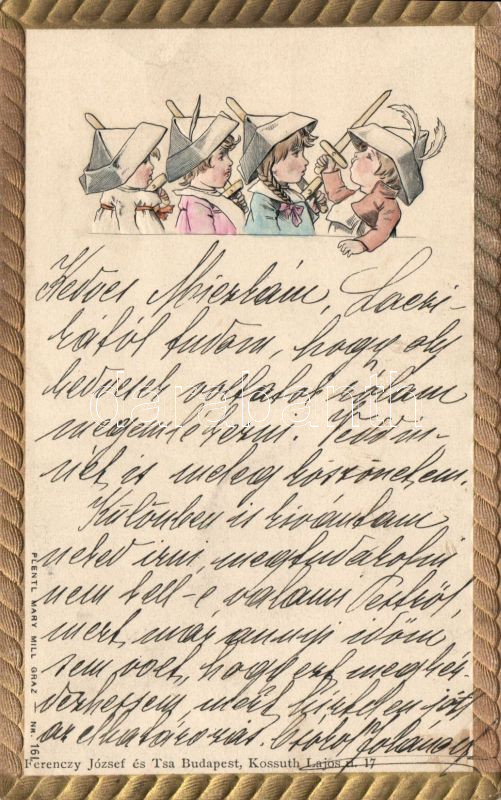 Kedves Miczkám, Laczi-
kától tudom, hogy oly
kedvesek voltatok rólam
megemlékezni. Kedvin-
nét is meleg köszönetem.
Különben is kívántam
neked irni, megtudakolni
nem kell-e valami Pestről,
mert már annyi időm
sem volt, hogy ezt megkér-
dezhessem, mért hirtelen jött
az elhatározás. Csókol Jolánod
PLENTL MARY MILL GRAZ Nr. 161.
Ferenczy József és Tsa Budapest, Kossuth Lajos u. 17
darabanth